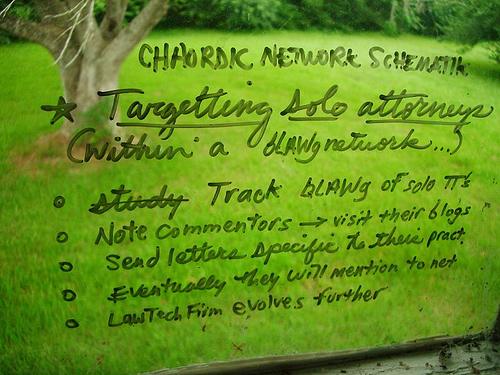 CHHORDIC NETWORK SCHEMATIK
★ Targetting solo attorneys
(within a blAWg network...)
o study Track blAWg of solo π's
o Note commentors → visit their blogs
o Send letters specific to their pract.
o Eventually they will mention to net
o LawTech Firm evolves further